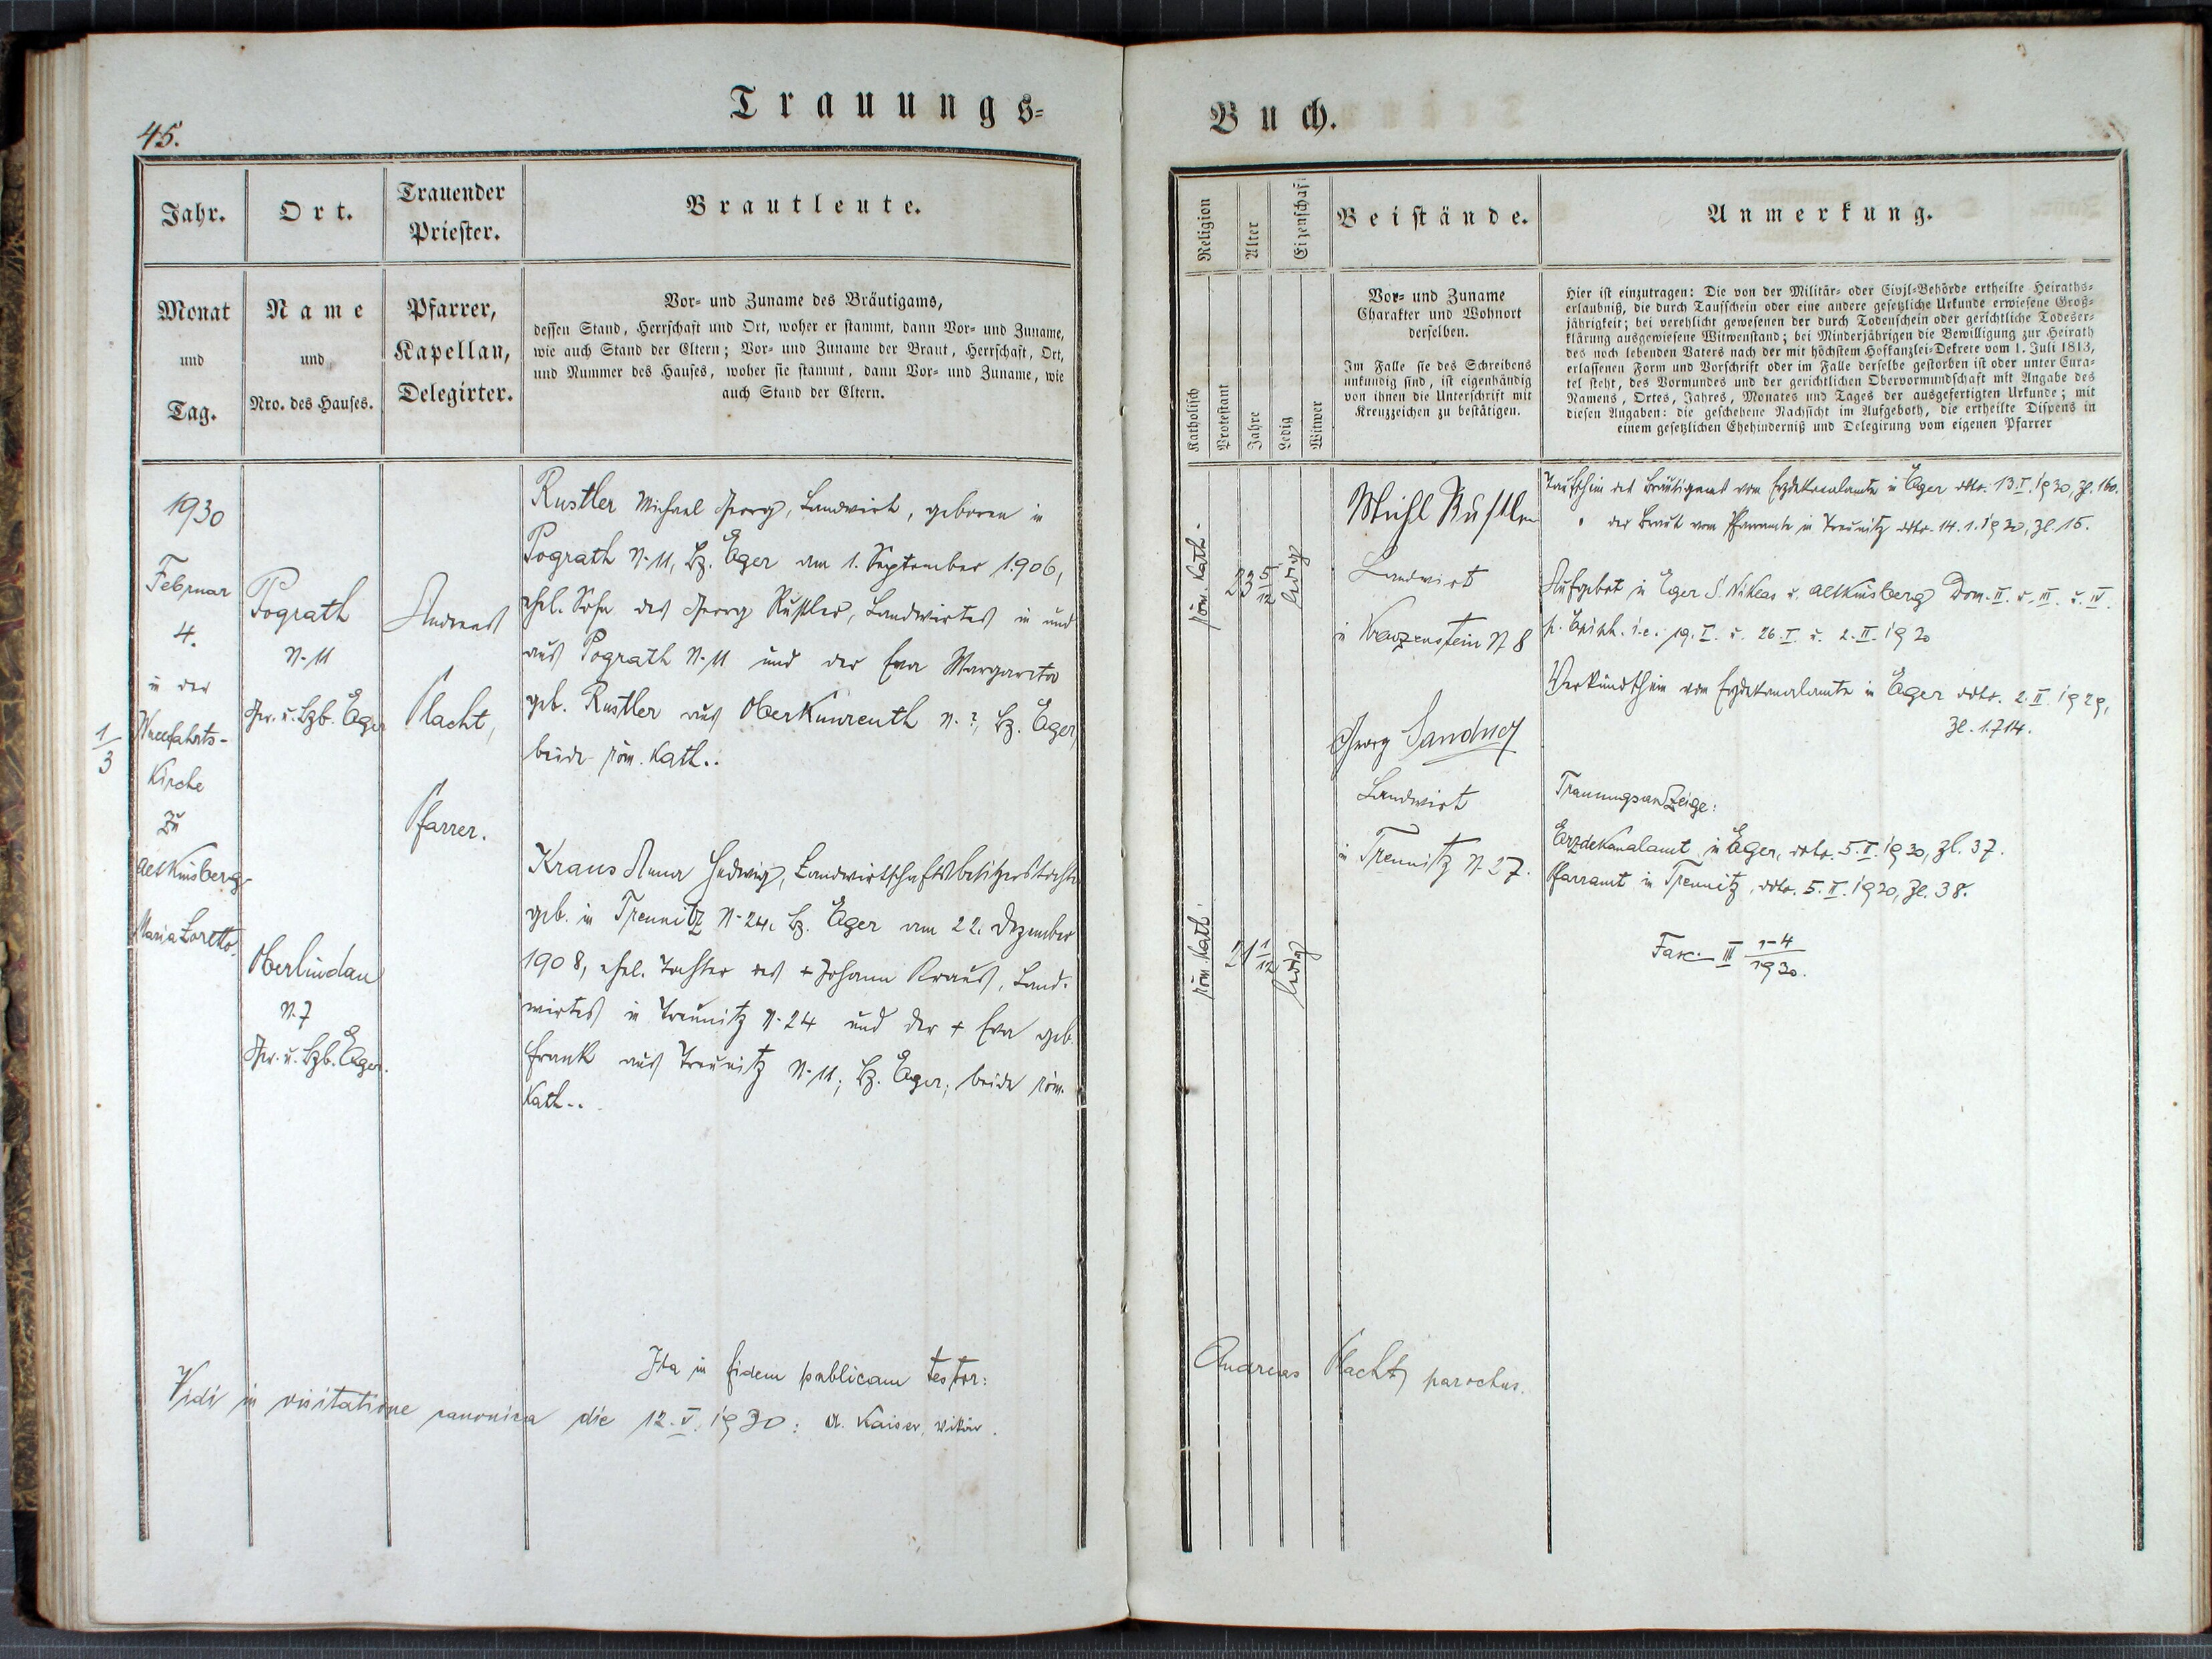 Trauungs-
45.
Jahr.
Ort.
Trauender
Priester.
Brautleute.
Monat
und
Tag.
Name
und
Nro. des Hauses.
Pfarrer,
Kapellan,
Delegirter.
Vor- und Zuname des Bräutigams,
dessen Stand, Herrschaft und Ort, woher er stammt, dann Vor- und Zuname,
wie auch Stand der Eltern; Vor- und Zuname der Braut, Herrschaft, Ort,
und Nummer des Hauses, woher sie stammt, dann Vor- und Zuname, wie
auch Stand der Eltern.
1/3
1930
Februar
4.
in der
Wallfahrts-
Kirche
zu
Altkinsberg
Maria Loretto.
Pograth
N. 11
Ger. u. Bzb. Eger
Oberlindau
N. 7
Ger. u. Bzb. Eger.
Andreas
Placht,
Pfarrer.
Rustler Michael Georg, Landwirt, geboren in
Pograth N. 11, Bz. Eger am 1. September 1906,
ehel. Sohn des Georg Rustler, Landwirtes in und
aus Pograth N. 11 und der Eva Margareta
geb. Rustler aus Oberkunreuth N. ?, Bz. Eger,
beide röm. kath..
Kraus Anna Hedwig, Landwirtschaftsbesitzerstochter
geb. in Treunitz N. 24, Bz. Eger am 22. Dezember
1908, ehel. Tochter des + Johann Kraus, Land-
wirtes in Treunitz N. 24 und der + Eva geb.
Frank aus Treunitz N. 11, Bz. Eger, beide röm.
kath..
Ita in fidem publicam testor:
Vidi in visitatione canonica die 12. V. 1930: A. Kaiser, Vikär.
Buch.
Religion
Alter
Eigenschaft
Beistände.
Anmerkung.
Katholisch
Protestant
Jahre
Ledig
Witwer
Vor- und Zuname
Charakter und Wohnort
derselben.
Im Falle sie des Schreibens
unkundig sind, ist eigenhändig
von ihnen die Unterschrift mit
Kreuzzeichen zu bestätigen.
Hier ist einzutragen: Die von der Militär- oder Civil-Behörde ertheilte Heiraths-
erlaubniß, die durch Taufschein oder eine andere gesetzliche Urkunde erwiesene Groß-
jährigkeit; bei verehlicht gewesenen der durch Todenschein oder gerichtliche Todeser-
klärung ausgewiesene Witwenstand; bei Minderjährigen die Bewilligung zur Heirath
des noch lebenden Vaters nach der mit höchstem Hofkanzlei-Dekrete vom 1. Juli 1813,
erlassenen Form und Vorschrift oder im Falle derselbe gestorben ist oder unter Cura-
tel steht, des Vormundes und der gerichtlichen Obervormundschaft mit Angabe des
Namens, Ortes, Jahres, Monates und Tages der ausgefertigten Urkunde; mit
diesen Angaben: die geschehene Nachsicht im Aufgeboth, die ertheilte Dispens in
einem gesetzlichen Ehehinderniß und Delegirung vom eigenen Pfarrer
röm. kath.
23 5/12
ledig
röm. kath.
21 1/12
ledig
Michl Rustler
Landwirt
in Kropenstein N. 8
Georg Sandner
Landwirt
in Treunitz N. 27.
Taufschein des Bräutigams vom Erzdekanalamte in Eger ddto. 13. I. 1930, Zl. 160.
" der Braut vom Pfarramte in Treunitz ddto. 14. 1. 1930, Zl. 15.
Aufgebot in Eger S. Niklas u. Altkinsberg Dom. II. u. III. u. IV.
p. Epiph. i. e. 19. I. u. 26. I. u. 2. II. 1930
Verkündschein vom Erzdekanalamte in Eger ddto. 2. II. 1929,
Zl. 1.714.
Trauungsanzeige:
Erzdekanalamt in Eger, ddto. 5. II. 1930, Zl. 37.
Pfarramt in Treunitz, ddto. 5. II. 1930, Zl. 38.
Fasc. III 1-4/1930.
Andreas Placht, parochus.